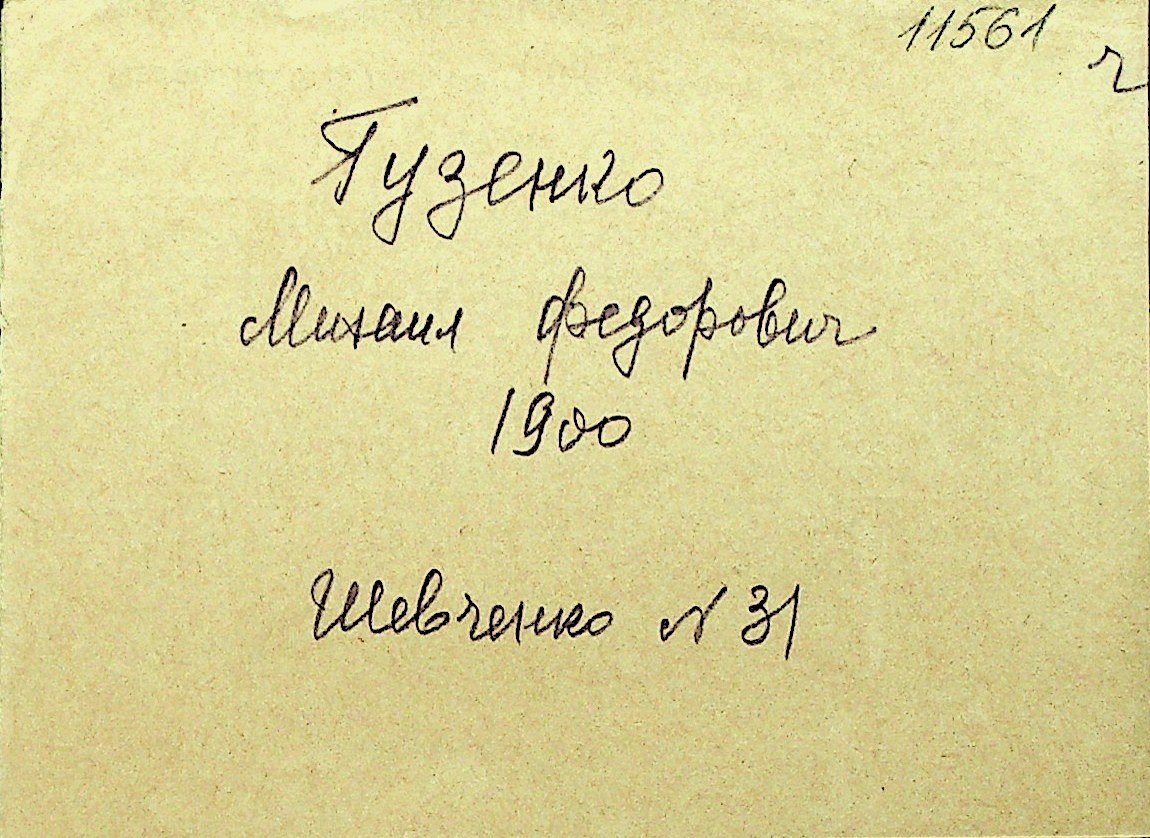 11561
г
Гузенко
Михаил Федорович
1900
Шевченко N 31